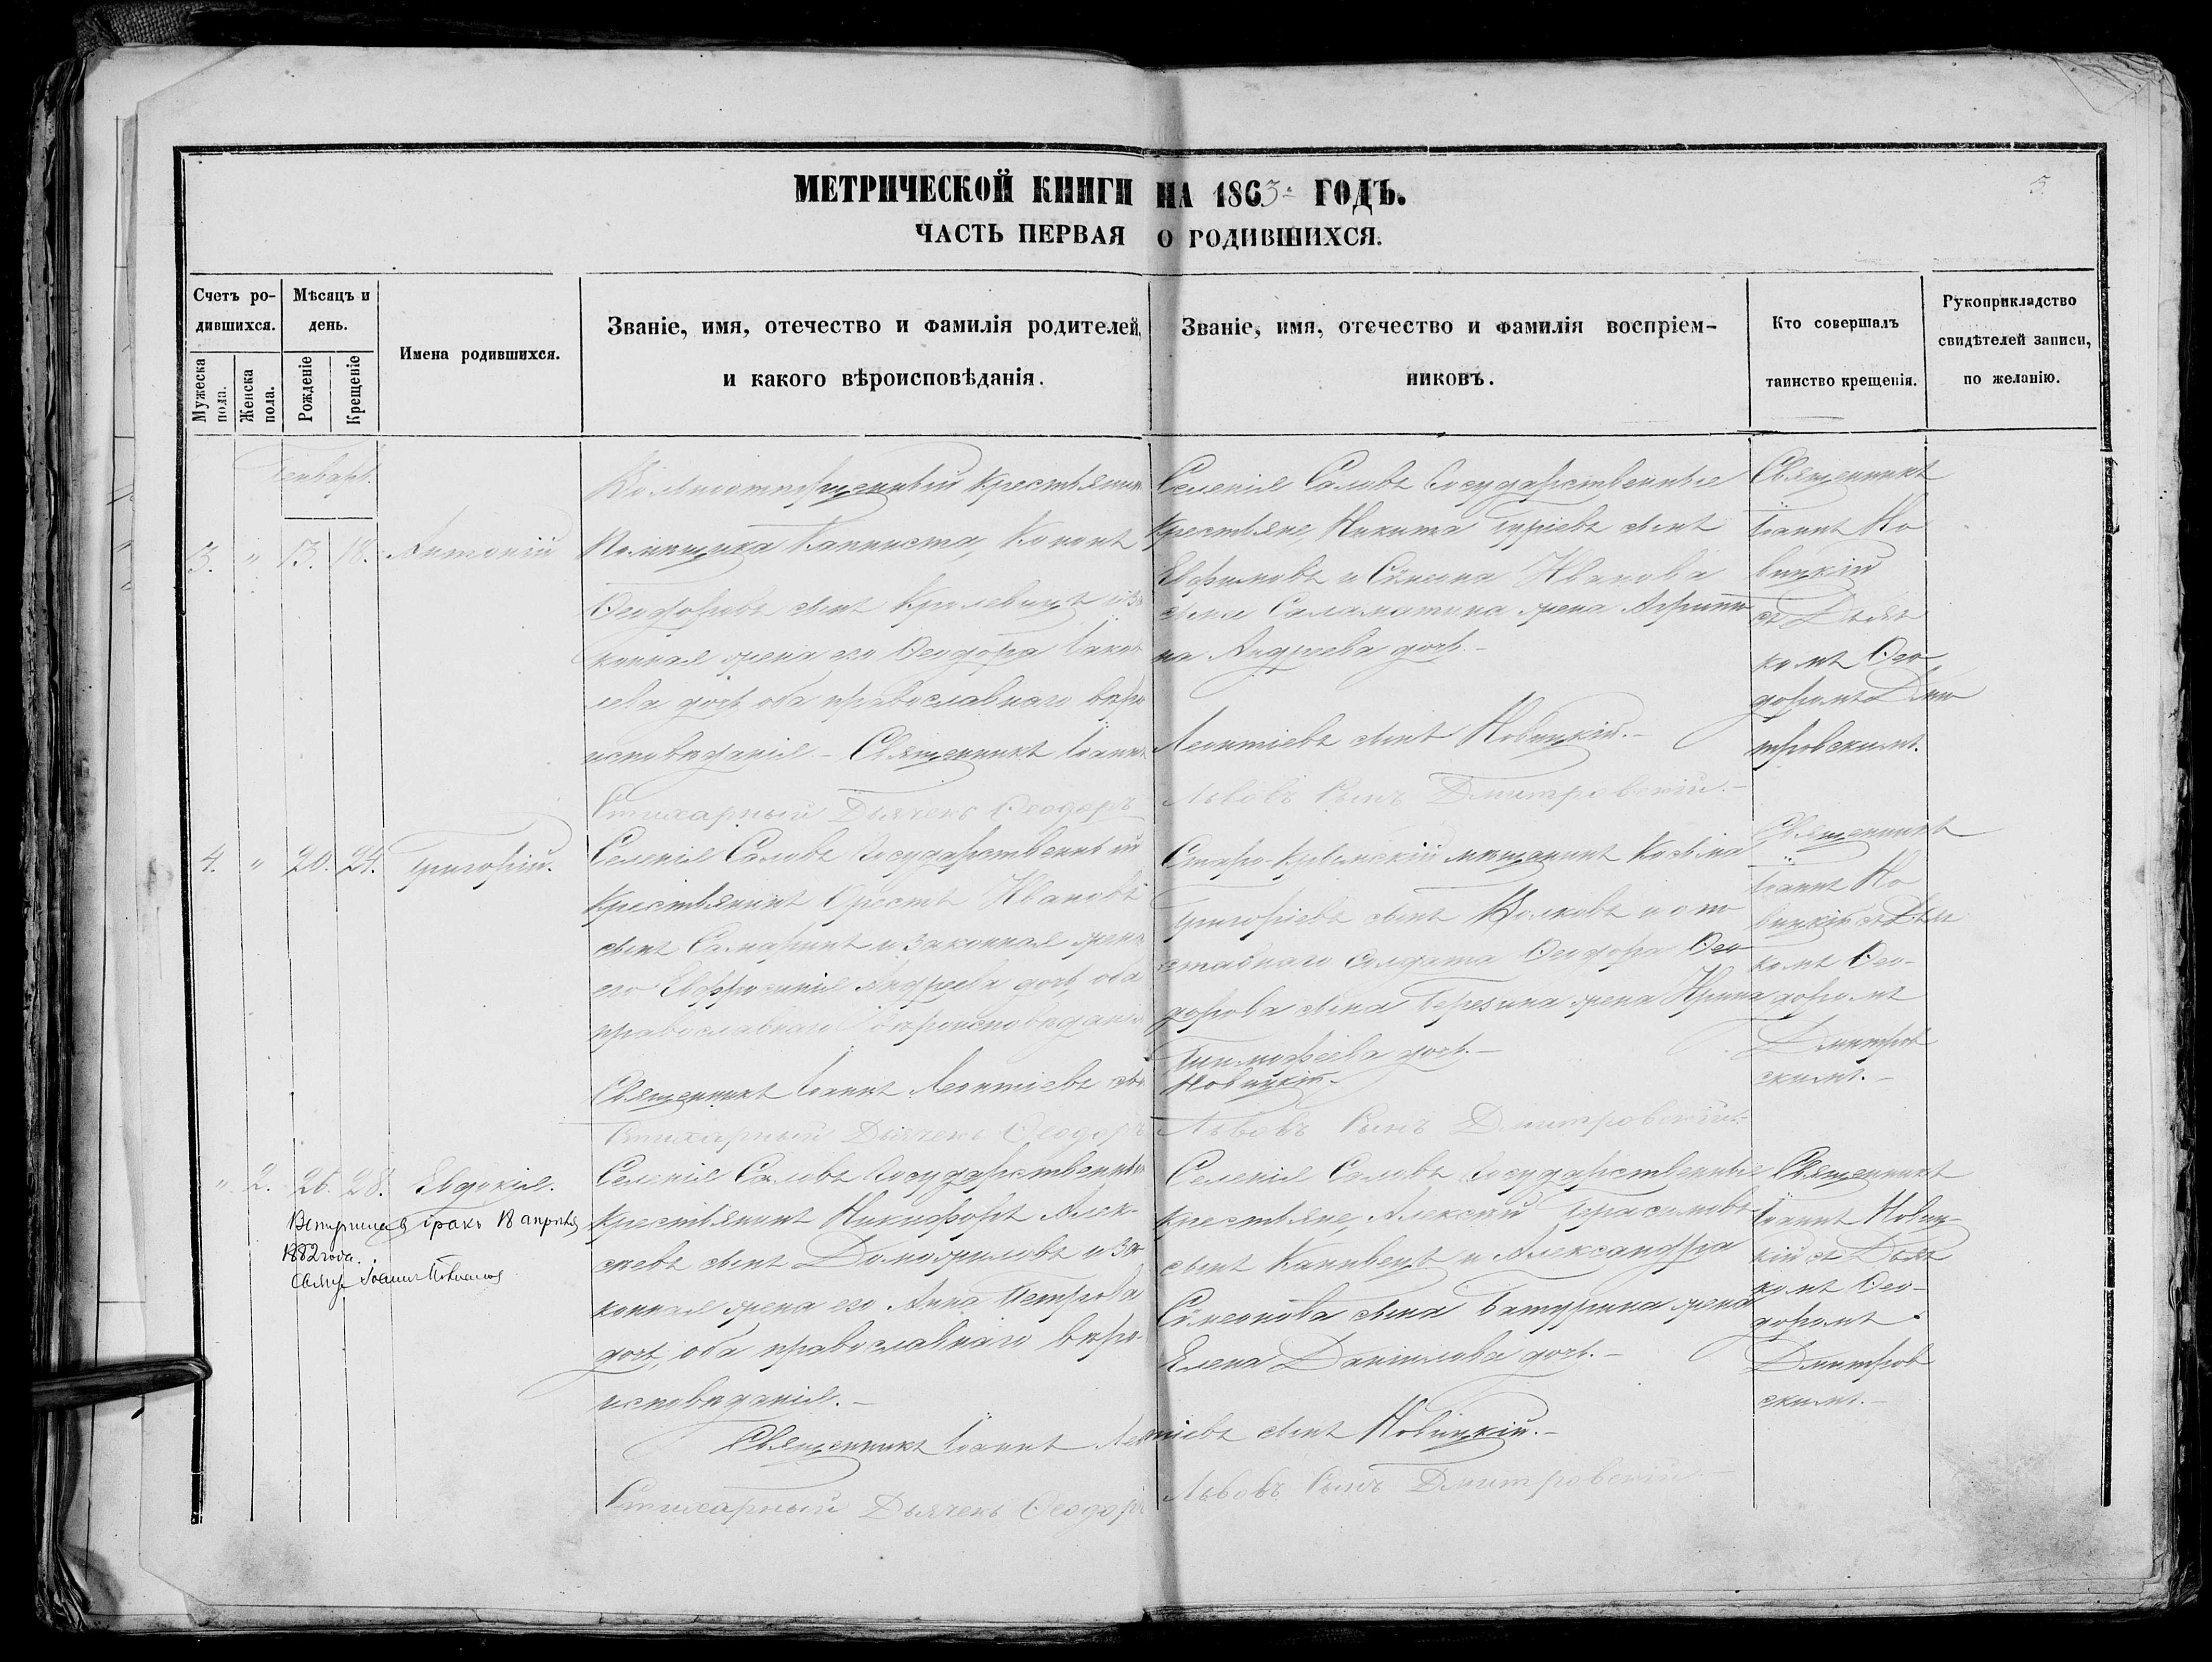 МЕТРИЧЕСКОЙ КНИГИ НА 1863 ГОДЪ.
5.
ЧАСТЬ ПЕРВАЯ О РОДИВШИХСЯ.
Счетъ ро-
дившихся.
Мужеска пола.
Женска пола.
Мѣсяцъ и
день.
Рожденіе
Крещеніе
Имена родившихся.
Званіе, имя, отечество и фамилія родителей,
и какого вѣроисповѣданія.
Званіе, имя, отечество и фамилія воспріем-
никовъ.
Кто совершалъ
таинство крещенія.
Рукоприкладство
свидѣтелей записи,
по желанію.
Генварь.
3. " 13. 18. Антоній
Вольноотпущенный крестьянинъ
Помѣщика Капниста, Кононъ
Ѳеодоровъ сынъ и за
конная жена его Ѳеодора Іаков
лева дочь оба православнаго вѣро
исповѣданія. - Священникъ Іоаннъ
Стихарный Дьячекъ Ѳеодоръ
Селенія Саловъ Государственные
крестьяне, Никита сынъ
Евфимовъ и Сѵмеона Иванова
сына Саламатина жена Агрипи
на Андреева дочь. -
Леонтіевъ сынъ Новицкій. -
Львовъ Сынъ Дмитровскій. -
Священникъ
Іоаннъ Но
вицкій
съ Дьяч
комъ Ѳео
доромъ Дми
тровскимъ.
4. " 20. 24. Григорій.
Селенія Саловъ Государственный
крестьянинъ Орестъ Ивановъ
сынъ Самаринъ и законная жена
его Евфросинія Андреева дочь, оба
православнаго вѣроисповѣданія
Священникъ Іоаннъ Леонтіевъ сынъ
Стихарный Дьячекъ Ѳеодоръ
Старо-Крымскій мѣщанинъ Косьма
Григоріевъ сынъ Волковъ и от
ставнаго солдата Ѳеодора Ѳео
дорова сына Березина жена Ирина
Тимофѣева дочь. -
Новицкій. -
Львовъ Сынъ Дмитровскій. -
Священникъ
Іоаннъ Но
вицкій съ Дьяч
комъ Ѳео-
доромъ
Дмитров
скимъ. -
" 2. 26. 28. Евдокія.
Вступила въ бракъ 18 апрѣля
1882 года.
Свящ. Іоаннъ
Селенія Саловъ Государственный
крестьянинъ Никифоръ Алек-
сѣевъ сынъ Доможиловъ и за
конная жена его Анна Петрова
дочь, оба православнаго вѣро-
исповѣданія. -
Священникъ Іоаннъ Леон
Стихарный Дьячекъ Ѳеодоръ
Селенія Саловъ Государственные
крестьяне, Алексѣй Герасимовъ
сынъ и Александра
Сѵмеонова сына Батурина жена
Елена Даніилова дочь. -
тіевъ сынъ Новицкій. -
Львовъ Сынъ Дмитровскій. -
Священникъ
Іоаннъ Новиц-
кій съ Дьяч
комъ Ѳео-
доромъ
Дмитров
скимъ. -